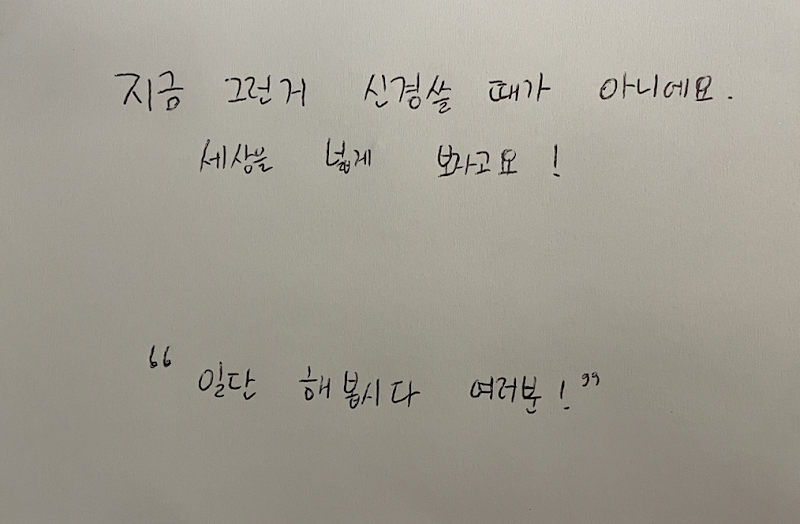 지금 그런거 신경쓸 때가 아니에요.
세상을 넓게 보라고요!
“일단 해봅시다 여러분!”